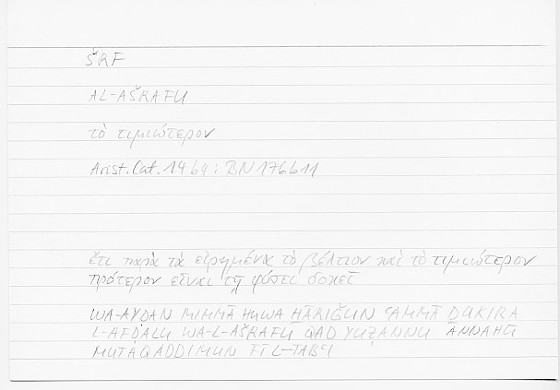 ŠRF
AL-AŠRAFU
τὸ τιμιώτερον
Arist. Cat. 14b4; BN 176b11
ἔτι παρὰ τὰ εἰρημένα τὸ βέλτιον καὶ τὸ τιμιώτερον
πρότερον εἶναι τῇ φύσει δοκεῖ
WA-AYḌAN MIMMĀ HUWA ḪĀRIǦUN ʿAMMĀ ḎUKIRA
L-AFḌALU WA-L-AŠRAFU QAD YUẒANNU ANNAHŪ
MUTAQADDIMUN FĪ L-ṬABʿI